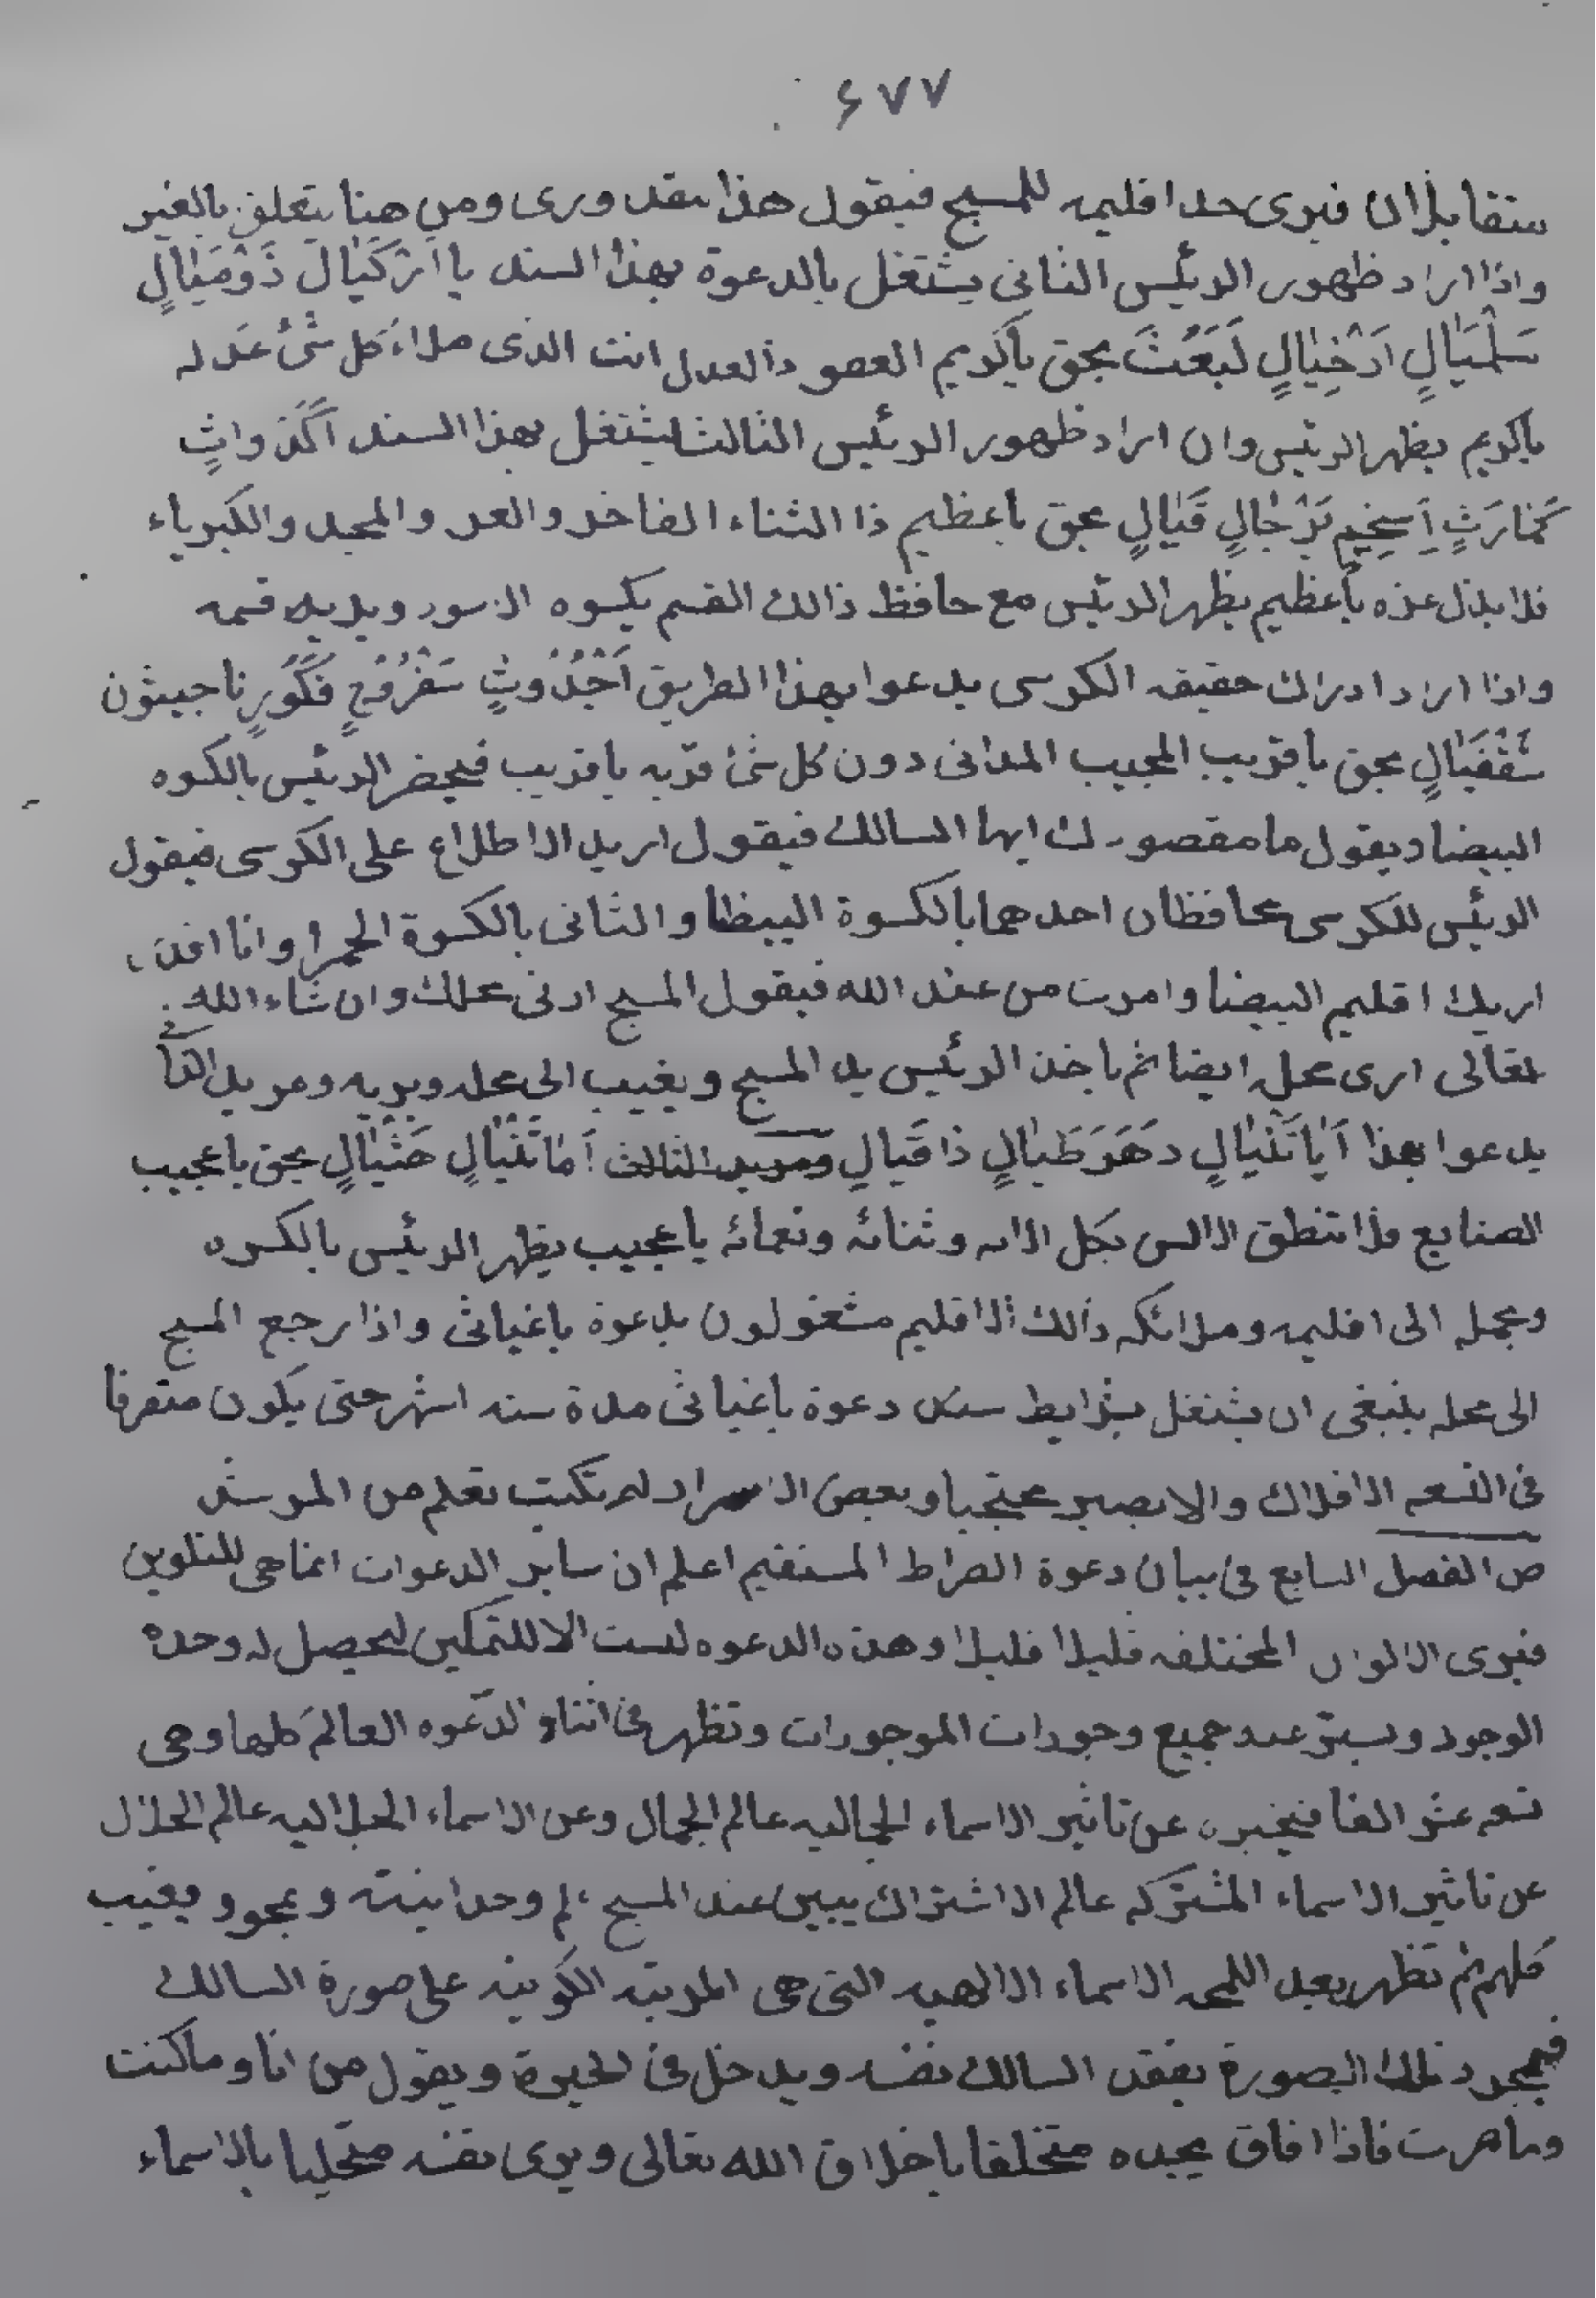 ۶۷۷
ستقابلان فيرى حد اقليمه للمسبح فيقول هذا بقد ورى ومن هنا يتعلق بالغير
واذا اراد ظهور الرئيس الثانى يشتغل بالدعوة بهذا السند يا اَرْكَيَالَ ذَوْمَيَالٍ
سَلْمَيَالٍ اَرْخِيَالٍ لَبَعُثَ بحق ياكريم العفو ذا لعدل انت الذى ملاءَ كل شئُ عَدله
ياكريم يظهر الرئيس وان اراد ظهور الرئيس الثالث يشتغل بهذا السند اَكَذَ واثٍ
بَرْجالٍ قَيَالٍ بحق ياعظيم ذا الثناء الفاخر والعز والمجد والكبرياء
فلا يذل عزه ياعظيم يظهر الرئيس مع حافظ ذالك القسم بكسوه الاسود ويريه قسمه
واذا اراد ادراك حقيقه الكرسى يدعوا بهذا الطريق اَجْدُوثٍ فَكُورٍ ناجيثون
شَفْقَيَالٍ بحق ياقريب المجيب المدانى دون كل شئ قربه ياقريب فيحضر الرئيس بالكسوه
البيضا ويقول ما مقصودك ايها السالك فيقول اريد الاطلاع على الكرسى فيقول
الرئيس للكرسى محافظان احدهما بالكسوة البيظا والثانى بالكسوة الحمرا وانا اقدر
اريك اقليم البيضا وامرت من عند الله فيقول المسبح ارنى محلك وان شاء الله
تعالى ارى محله ايضا ثم ياخذ الرئيس يد المسبح ويغيب الى محله ويريه ومريد الثانى
يدعوا بهذا اَيَا تَنْيَالٍ دهَرَطَيَالٍ ذا قَيَالٍ ومريد الثالث اَمَا تَنْيَالٍ هَثْيَالٍ بحق ياعجيب
الصنايع فلا تنطق الالسن بكل الائه وثنائه ونعمائه ياعجيب يظهر الرئيس بالكسوه
ويحمله الى اقليمه وملائكه ذالك الاقليم مشغولون بدعوة ياغياثى واذا رجع المسبح
الى محله ينبغى ان يشتغل بشرايط سند دعوة ياغياثى مدة سته اشهر حتى يكون متصرفا
فى التسعه الافلاك والا يصير محتجبا وبعض الاسرار لم تكتب تعلم من المرشد
ص الفصل السابع فى بيان دعوة الصراط المستقيم اعلم ان ساير الدعوات انما هى للتلوين
فيرى الالوان المختلفه قليلا قليلا وهذه الدعوه ليست الا للتمكين ليحصل له وحدة
الوجود جميع وجودات الموجودات وتظهر فى اثناء الدّعوه العالمَ كلها وهى
تسعه عشر الفا فيخبره عن تاثير الاسماء الجماليه عالم الجمال وعن الاسماء الجلاليه عالم الجلال
عن تاثير الاسماء المشتركه عالم الاشتراك يبين عند المسبح لم وحدانيته ويمحو ويغيب
كلهم ثم تظهر بعد اللمحه الاسماء الالهيه التى هى المرتبه الكونيه على صورة السالك
فبمجرد ذلك الصورة يفقد السالك نفسه ويدخل فى الحيرة ويقول من انا وما كنت
وما صرت فاذا افاق يجده متخلقا باخلاق الله تعالى ويرى نفسه متحليا بالاسماء